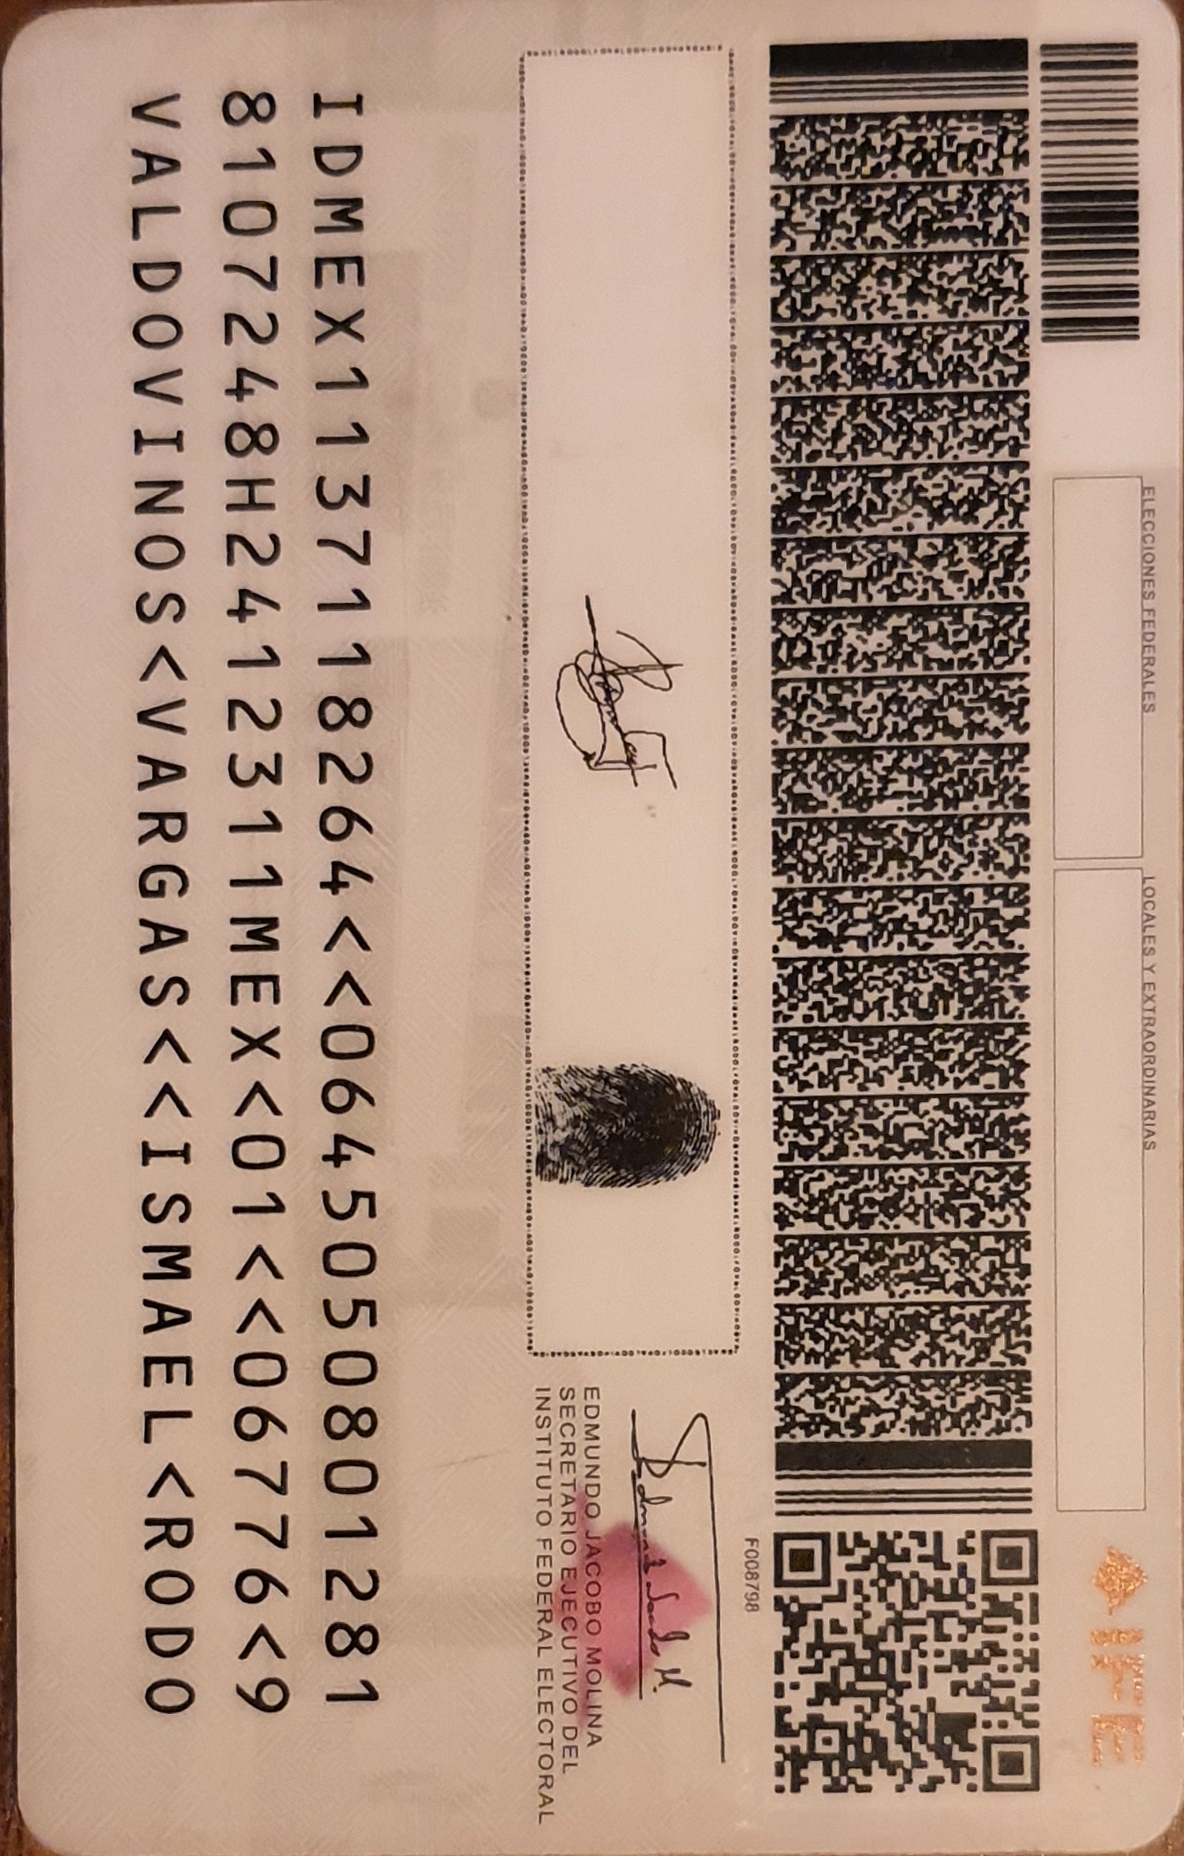 ELECCIONES FEDERALES
LOCALES Y EXTRAORDINARIAS
IFE
F008798
EDMUNDO JACOBO MOLINA
SECRETARIO EJECUTIVO DEL
INSTITUTO FEDERAL ELECTORAL
IDMEX1137118264<<0645050801281
8107248H2412311MEX<01<<06776<9
VALDOVINOS<VARGAS<<ISMAEL<RODO